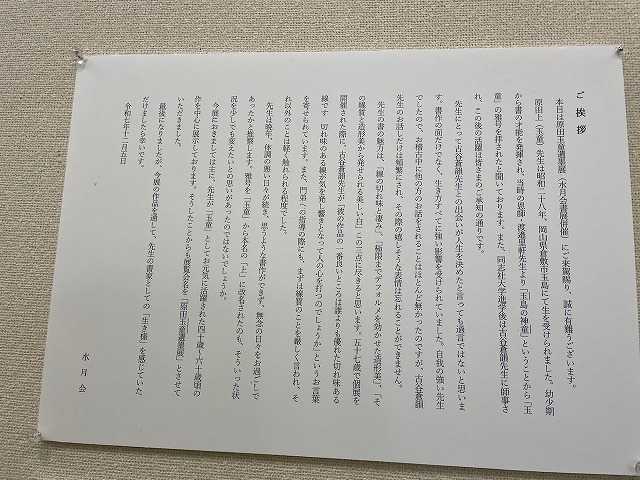 ご挨拶
本日は原田玉童遺墨展（水月会書展併催）にご来駕賜り、誠に有難うございます。
原田上（玉童）先生は昭和二十八年、岡山県倉敷市玉島にて生を受けられました。幼少期
から書の才能を発揮され、当時の恩師・渡邉里軒先生より「玉島の神童」ということから「玉
童」の雅号を拝されたと聞いております。また、同志社大学進学後は古谷蒼韻先生に師事さ
れ、この後の活躍は皆さまのご承知の通りです。
先生にとって古谷蒼韻先生との出会いが人生を決めたと言っても過言ではないと思いま
す。書作の面だけでなく、生き方すべてに強い影響を受けられていました。自我の強い先生
でしたので、お稽古中に他の方のお話をされることはほとんど無かったのですが、古谷蒼韻
先生のお話しだけは頻繁にされ、その際の嬉しそうな表情は忘れることができません。
先生の書の魅力は、「線の切れ味と凄み」、「極限までデフォルメを効かせた造形美」、「そ
の線質と造形美から発せられる美しい白」この三点に尽きると思います。五十七歳で個展を
開催された際に、古谷蒼韻先生が「彼の作品の一番良いところは誰よりも優れた切れ味ある
線です　切れ味のある線が気を発し響きとなって人の心を打つのでしょうか」というお言葉
を寄せられています。また、門弟への指導の際にも、まずは線質のことを厳しく言われ、そ
れ以外のことは軽く触れられる程度でした。
先生は晩年、体調の悪い日々が続き、思うような書作ができず、無念の日々をお過ごしで
あったかと推察します。雅号を「玉童」から本名の「上」に改名されたのも、そういった状
況を少しでも変えたいとの思いがあったのではないでしょうか。
今展におきましては主に、先生が「玉童」としてお元気に活躍された四十歳～五十歳頃の
作を中心に展示しております。そうしたことからも展覧会名を「原田玉童遺墨展」とさせて
いただきました。
最後になりましたが、今展の作品を通して、先生の書家としての「生き様」を感じていた
だけましたら幸いです。
令和七年十一月五日
水月会